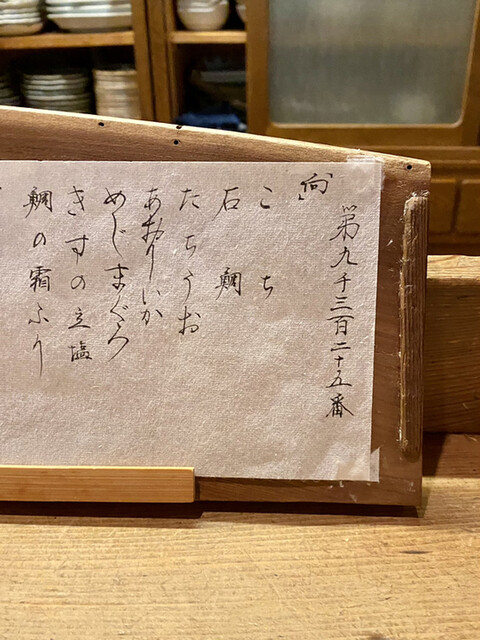 第九千三百二十五番
「向」
こち
石鯛
たちうお
あおりいか
めじまぐろ
きすの立塩
鯛の霜ふり